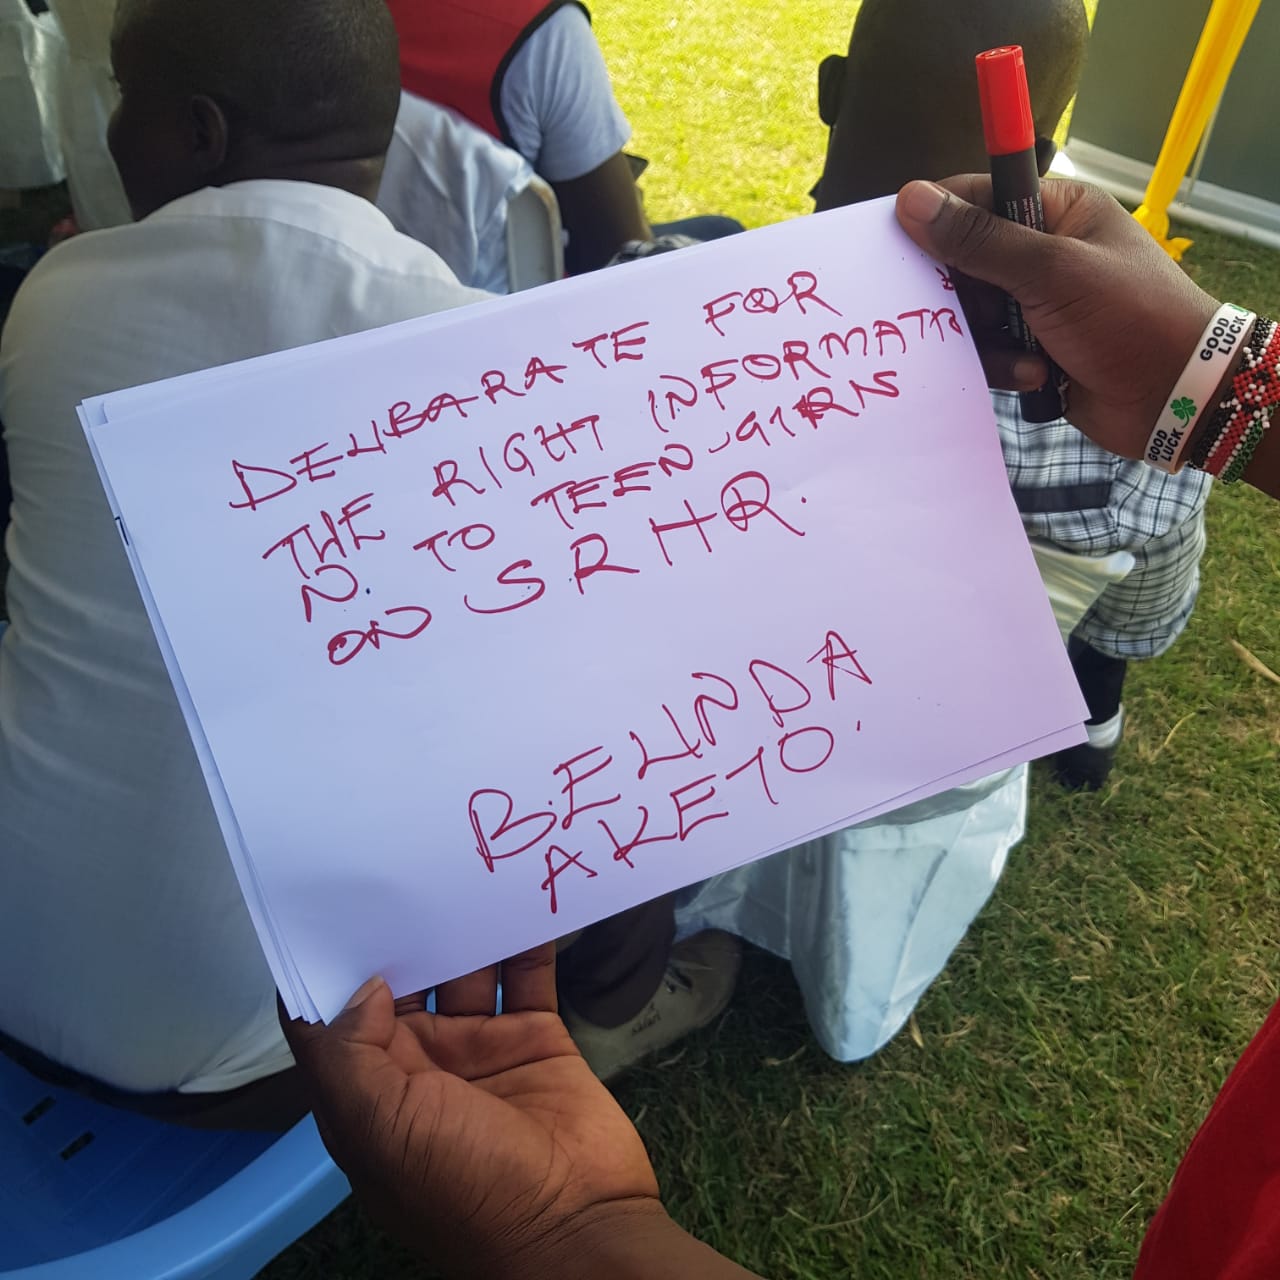 DELIBARATE FOR
THE RIGHT INFORMATIO
N. TO TEEN GIRNS
ON SRHR.
BELINDA
AKETO.
GOOD LUCK
GOOD LUCK